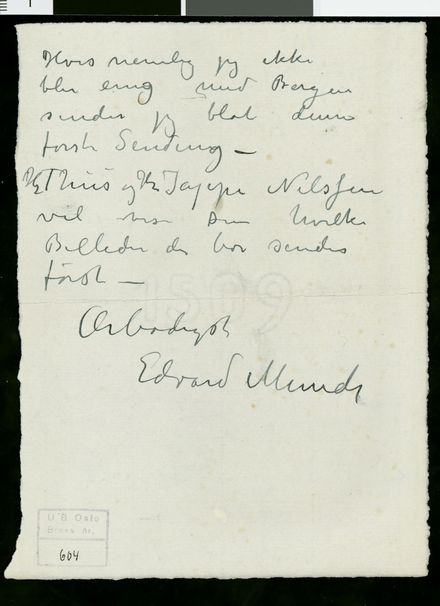 Hvis nemlig jeg ikke
blir enig med Bergen
sender jeg blot denne
første Sending –
Hr Thiis og Hr Jappe Nilssen
vil vise Dem hvilke
Billeder der bør sendes
først –
Ærbødigst
Edvard Munch
1509
U B Oslo
Brevs. nr.
604